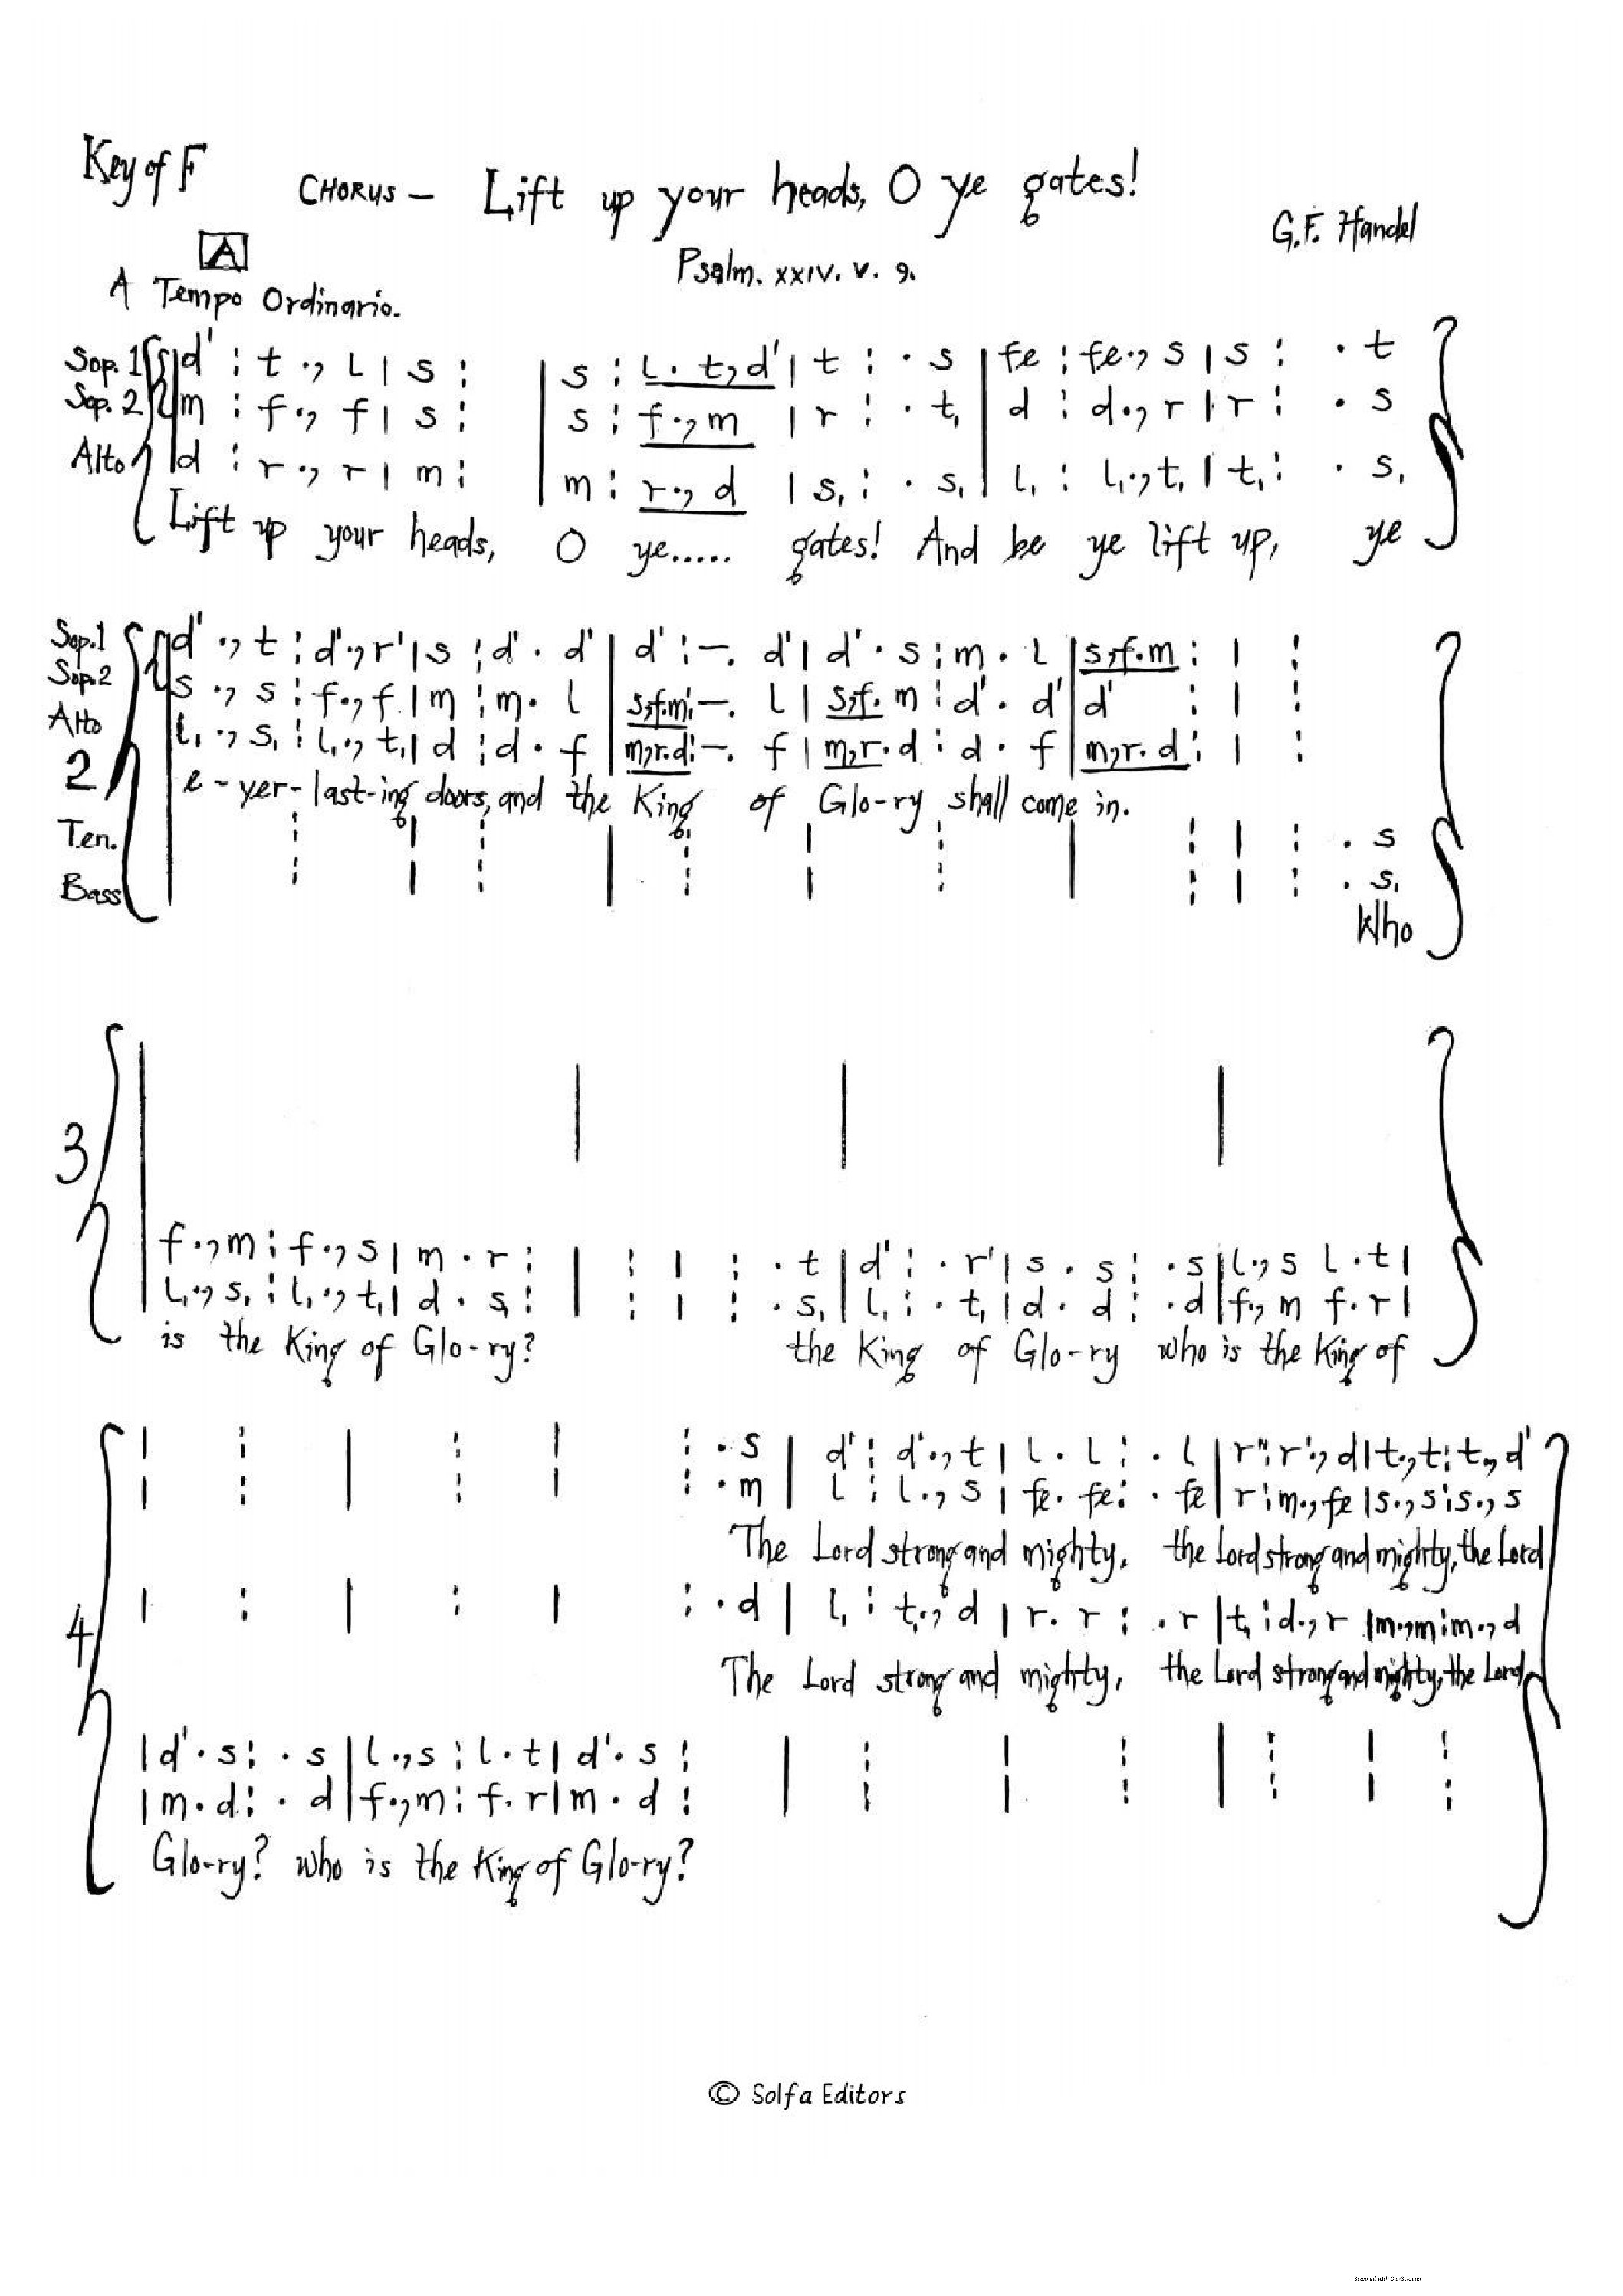 Key of F
CHORUS – Lift up your heads, O ye gates!
G.F. Handel
A
Psalm. xxiv. v. 9.
A Tempo Ordinario.
Sop. 1 |d' : t ., l | s : | s : l . t, d' | t : . s | fe : fe ., s | s : . t
Sop. 2 |m : f ., f | s : | s : f ., m | r : . t, | d : d ., r | r : . s
Alto |d : r ., r | m : | m : r ., d | s, : . s, | l, : l, ., t, | t, : . s,
Lift up your heads, O ye..... gates! And be ye lift up, ye
Sop.1 |d' ., t : d' ., r' | s : d' . d' | d' : –. d' | d' . s : m . l | s,f.m : | :
Sop.2 |s ., s : f ., f | m : m . l | s,f.m : –. l | s,f. m : d' . d' | d' : | :
Alto |l, ., s, : l, ., t, | d : d . f | m,r.d : –. f | m,r. d : d . f | m,r. d : | :
2
e - ver- last-ing doors, and the King of Glo-ry shall come in.
Ten. | : | : | : | : | : | : . s
Bass | : | : | : | : | : | : . s,
Who
3
f ., m : f ., s | m . r : | : | : . t | d' : . r' | s . s : . s | l ., s l . t |
l, ., s, : l, ., t, | d . s, : | : | : . s, | l, : . t, | d . d : . d | f ., m f . r |
is the King of Glo-ry? the King of Glo-ry who is the King of
| : | : | : . s | d' : d' ., t | l . l : . l | r'' : r' ., d | t ., t : t ., d'
| : | : | : . m | l : l ., s | fe . fe : . fe | r : m ., fe | s ., s : s ., s
The Lord strong and mighty, the Lord strong and mighty, the Lord
4
| : | : | : . d | l, : t, ., d | r . r : . r | t, : d ., r | m ., m : m ., d
The Lord strong and mighty, the Lord strong and mighty, the Lord
| d' . s : . s | l ., s : l . t | d' . s : | : | : | : | :
| m . d : . d | f ., m : f . r | m . d : | : | : | : | :
Glo-ry? who is the King of Glo-ry?
© Solfa Editors
Scanned with CamScanner